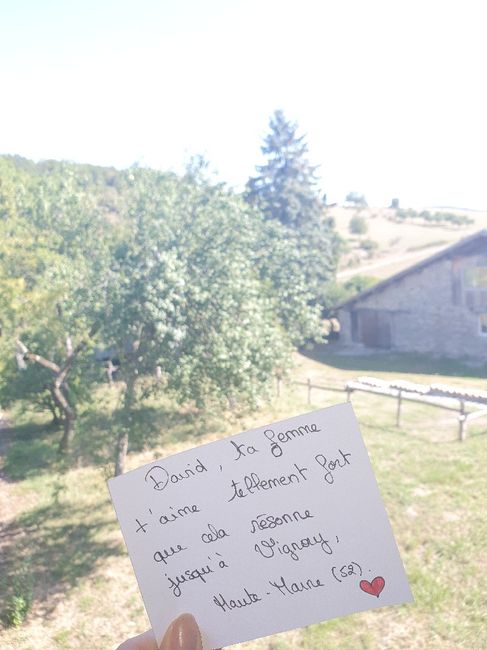 David, ta femme
t'aime tellement fort
que cela résonne
jusqu'à Vignory,
Haute-Marne (52).